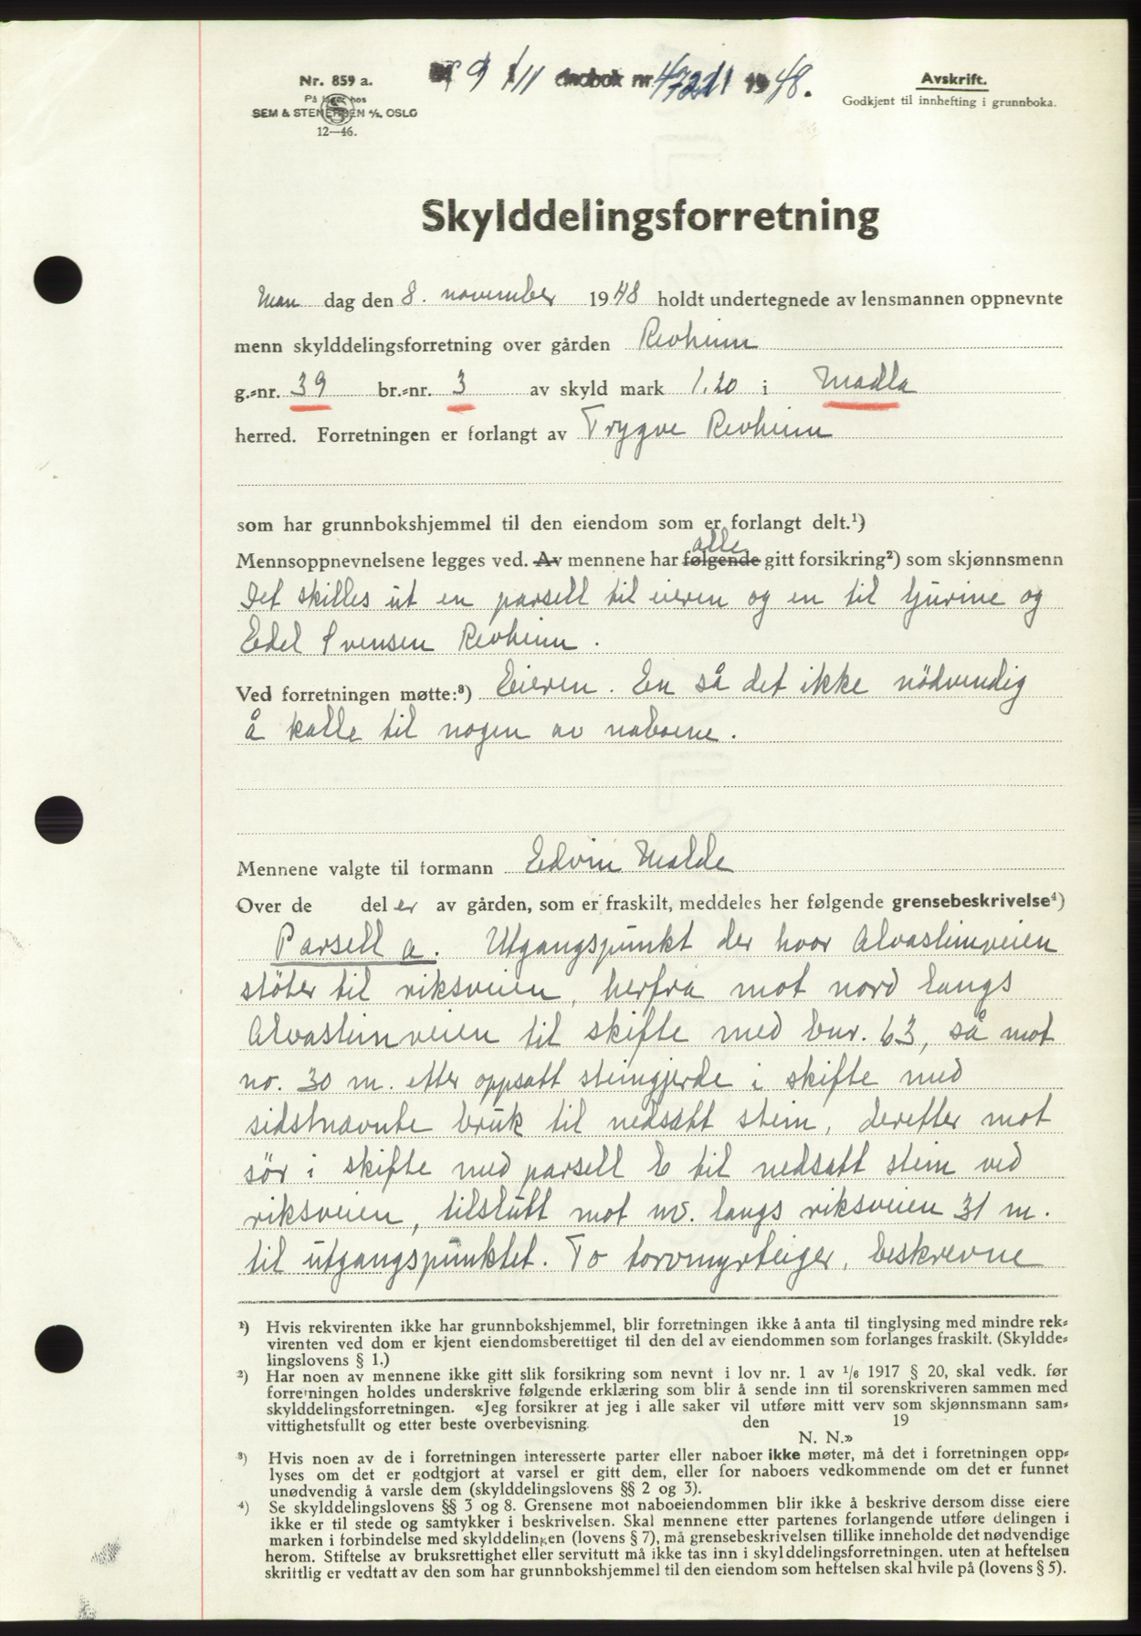 Nr. 859 a.
På lager hos
SEM & STENERSEN A/S, OSLO
12—46.
9/11 dagbok nr 4721 1948.
Avskrift.
Godkjent til innhefting i grunnboka.
Skylddelingsforretning
Man dag den 8. november 1948 holdt undertegnede av lensmannen oppnevnte
menn skylddelingsforretning over gården Revheim
g.-nr. 39 br.-nr. 3 av skyld mark 1.20 i Madla
herred. Forretningen er forlangt av Trygve Revheim
som har grunnbokshjemmel til den eiendom som er forlangt delt.¹)
alle
Mennsoppnevnelsene legges ved. Av mennene har følgende gitt forsikring²) som skjønnsmenn
Det skilles ut en parsell til eieren og en til Gurine og
Edel Svensen Revheim.
Ved forretningen møtte:³) Eieren. En så det ikke nödvendig
å kalle til nogen av naboene.
Mennene valgte til formann Edvin Malde
Over de deler av gården, som er fraskilt, meddeles her følgende grensebeskrivelse⁴)
Parsell a. Utgangspunkt der hvor Alvasteinveien
stöter til riksveien, herfra mot nord langs
Alvasteinveien til skifte med bnr. 63, så mot
no. 30 m. etter oppsatt steingjerde i skifte med
sidstnævnte bruk til nedsatt stein, derefter mot
sör i skifte med parsell b til nedsatt stein ved
riksveien, tilslutt mot nv. langs riksveien 31 m.
til utgangspunktet. To torvmyrteiger, beskrevne
¹) Hvis rekvirenten ikke har grunnbokshjemmel, blir forretningen ikke å anta til tinglysing med mindre rek-
virenten ved dom er kjent eiendomsberettiget til den del av eiendommen som forlanges fraskilt. (Skyldde-
lingslovens § 1.)
²) Har noen av mennene ikke gitt slik forsikring som nevnt i lov nr. 1 av 1/6 1917 § 20, skal vedk. før
forretningen holdes underskrive følgende erklæring som blir å sende inn til sorenskriveren sammen med
skylddelingsforretningen. «Jeg forsikrer at jeg i alle saker vil utføre mitt verv som skjønnsmann sam-
vittighetsfullt og etter beste overbevisning. den 19
N. N.»
³) Hvis noen av de i forretningen interesserte parter eller naboer ikke møter, må det i forretningen opp-
lyses om det er godtgjort at varsel er gitt dem, eller for naboers vedkommende om det er funnet
unødvendig å varsle dem (skylddelingslovens §§ 2 og 3).
⁴) Se skylddelingslovens §§ 3 og 8. Grensene mot naboeiendommen blir ikke å beskrive dersom disse eiere
ikke er til stede og samtykker i beskrivelsen. Skal mennene etter partenes forlangende utføre delingen i
marken i forbindelse med skylddelingen (lovens § 7), må grensebeskrivelsen tillike inneholde det nødvendige
herom. Stiftelse av bruksrettighet eller servitutt må ikke tas inn i skylddelingsforretningen, uten at heftelsen
skriftlig er vedtatt av den som har grunnbokshjemmel til den eiendom som heftelsen skal hvile på (lovens § 5).